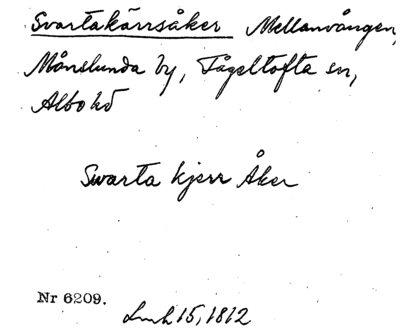 Svartakärrsåker Mellanvången,
Månslunda by, Tågeltofta sn,
Albo hd
Swarta kjerr Åker
Nr 6209.
Lmh 15, 1812